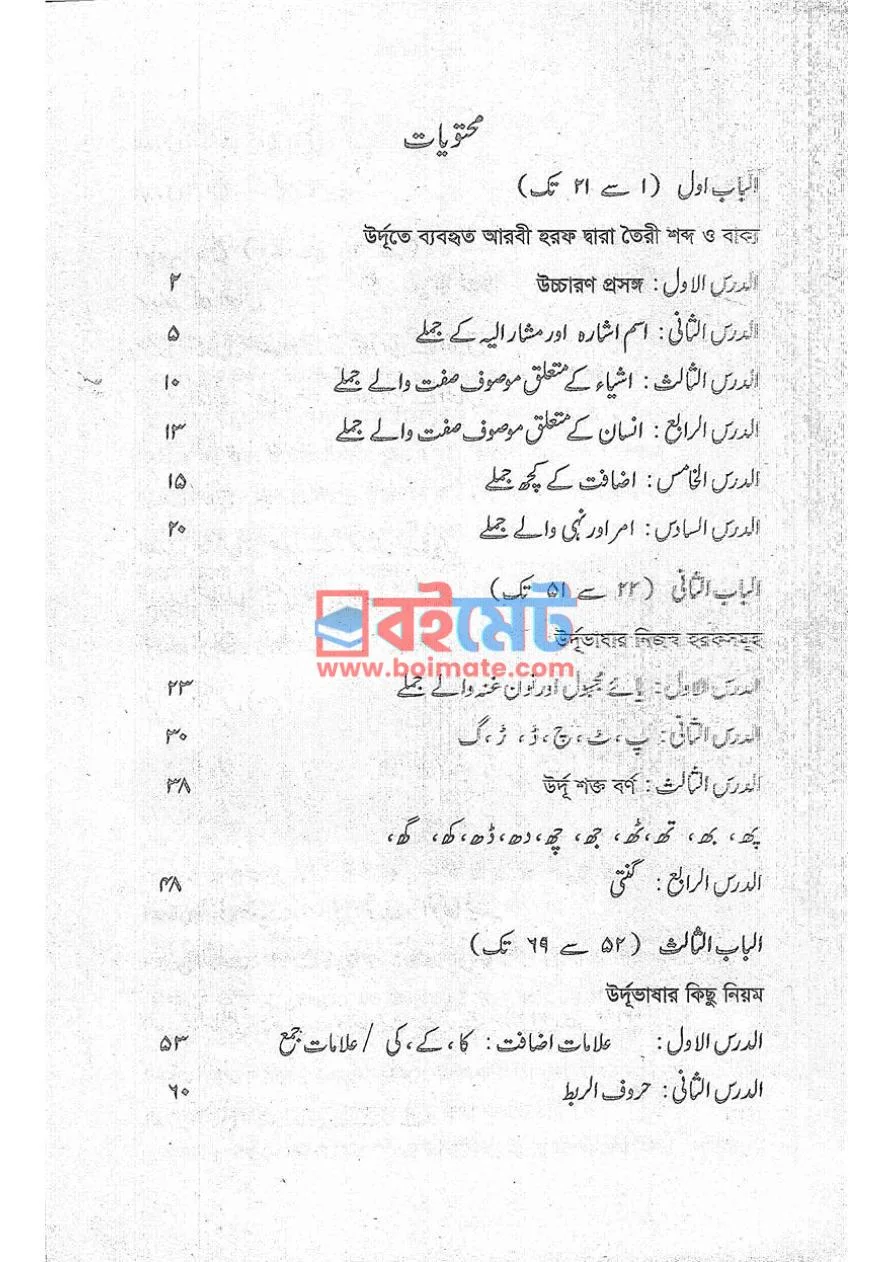 محتویات
الباب اول (۱ سے ۲۱ تک)
উর্দূতে ব্যবহৃত আরবী হরফ দ্বারা তৈরী শব্দ ও বাক্য
الدرس الاول: উচ্চারণ প্রসঙ্গ ۲
الدرس الثانی: اسم اشارہ اور مشار الیہ کے جملے ۵
الدرس الثالث: اشیاء کے متعلق موصوف صفت والے جملے ۱۰
الدرس الرابع: انسان کے متعلق موصوف صفت والے جملے ۱۳
الدرس الخامس: اضافت کے کچھ جملے ۱۵
الدرس السادس: امر اور نہی والے جملے ۲۰
الباب الثانی (۲۲ سے ۵۱ تک)
বইমেট
উর্দূভাষার নিজস্ব হরফসমূহ
www.boimate.com
الدرس الاول: یائے مجہول اور نون غنہ والے جملے ۲۳
الدرس الثانی: پ، ٹ، چ، ڈ، ڑ، گ ۳۰
الدرس الثالث: উর্দূ শক্ত বর্ণ ۳۸
پھ، بھ، تھ، ٹھ، جھ، چھ، دھ، ڈھ، کھ، گھ،
الدرس الرابع: گنتی ۴۸
الباب الثالث (۵۲ سے ۶۹ تک)
উর্দূভাষার কিছু নিয়ম
الدرس الاول: علامات اضافت: کا، کے، کی / علامات جمع ۵۳
الدرس الثانی: حروف الربط ۶۰